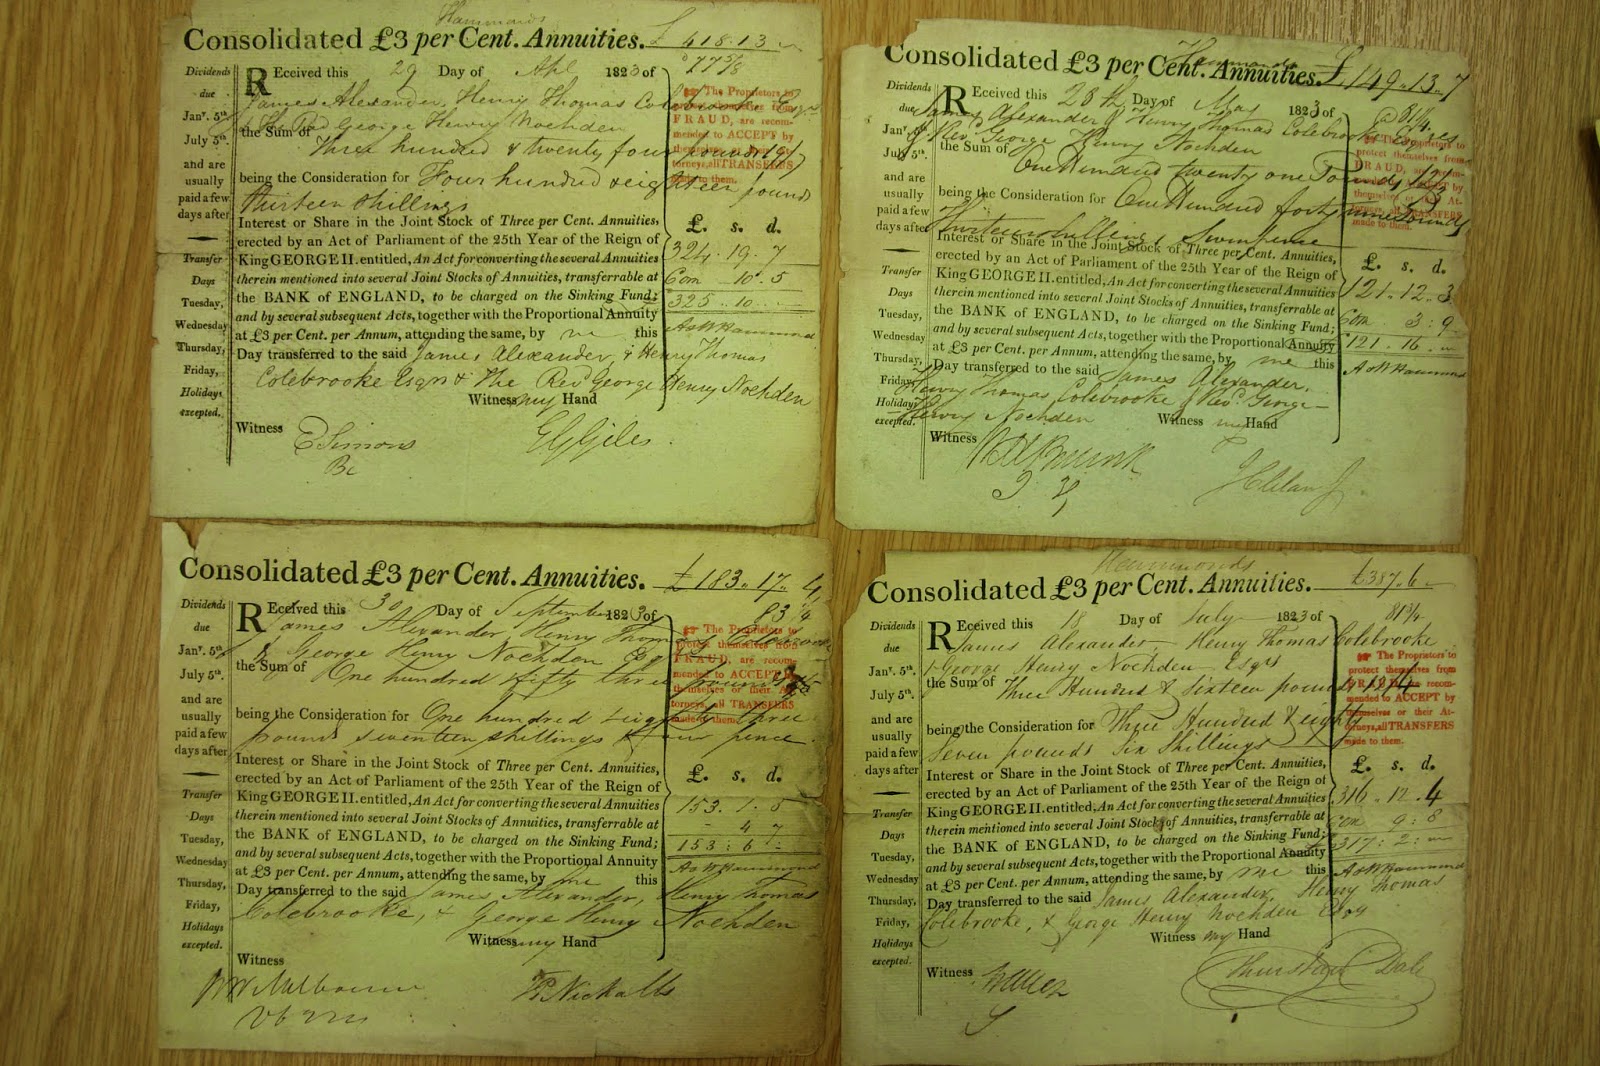 Hammonds
Consolidated £3 per Cent. Annuities. £ 418.13 –
Dividends
due
Janʸ. 5ᵗʰ
July 5ᵗʰ.
and are
usually
paid a few
days after
Transfer
Days
Tuesday,
Wednesday
Thursday,
Friday,
Holidays
excepted.
REceived this 29 Day of Apl 1823 of 77 5/8
James Alexander, Henry Thomas Colebrooke Esqrs
& the Revd George Henry Noehden
the Sum of Three hundred & twenty four pounds 19/7
being the Consideration for Four hundred & eighteen pounds
thirteen shillings
Interest or Share in the Joint Stock of Three per Cent. Annuities,
erected by an Act of Parliament of the 25th Year of the Reign of
King GEORGE II. entitled, An Act for converting the several Annuities
therein mentioned into several Joint Stocks of Annuities, transferrable at
the BANK of ENGLAND, to be charged on the Sinking Fund;
and by several subsequent Acts, together with the Proportional Annuity
at £3 per Cent. per Annum, attending the same, by me this
Day transferred to the said James Alexander, & Henry Thomas
Colebrooke Esqrs & the Revd George Henry Noehden
Witness my Hand
Witness
E Simons
GGGiles
☞ The Proprietors to
protect themselves from
FRAUD, are recom-
mended to ACCEPT by
themselves or their At-
torneys, all TRANSFERS
made to them.
£. s. d.
324 . 19 . 7
Com – 10 . 5
325 . 10 . –
A & W Hammond
Consolidated £3 per Cent. Annuities. £ 149 . 13 . 7
Dividends
due
Janʸ. 5ᵗʰ
July 5ᵗʰ.
and are
usually
paid a few
days after
Transfer
Days
Tuesday,
Wednesday
Thursday,
Friday,
Holidays
excepted.
REceived this 28th Day of May 1823 of @ 81 1/4
James Alexander & Henry Thomas Colebrooke Esqres
& Revd George Henry Noehden
the Sum of One Hundred twenty one Pounds 12/3
being the Consideration for One Hundred forty nine Pounds
Thirteen shillings & Seven pence
Interest or Share in the Joint Stock of Three per Cent. Annuities,
erected by an Act of Parliament of the 25th Year of the Reign of
King GEORGE II. entitled, An Act for converting the several Annuities
therein mentioned into several Joint Stocks of Annuities, transferrable at
the BANK of ENGLAND, to be charged on the Sinking Fund;
and by several subsequent Acts, together with the Proportional Annuity
at £3 per Cent. per Annum, attending the same, by me this
Day transferred to the said James Alexander,
Henry Thomas Colebrooke & Revd. George
Henry Noehden Witness my Hand
Witness
☞ The Proprietors to
protect themselves from
FRAUD, are recom-
mended to ACCEPT by
themselves or their At-
torneys, all TRANSFERS
made to them.
£. s. d.
121 . 12 . 3
Com 3 : 9
121 . 16 . –
A & W Hammond
Consolidated £3 per Cent. Annuities. £ 183 . 17 . 4
Dividends
due
Janʸ. 5ᵗʰ
July 5ᵗʰ.
and are
usually
paid a few
days after
Transfer
Days
Tuesday,
Wednesday
Thursday,
Friday,
Holidays
excepted.
REceived this 30 Day of September 1823 of 83 1/4
James Alexander Henry Thomas Colebrooke
& George Henry Noehden Esqrs
the Sum of One hundred fifty three pounds 1/5
being the Consideration for One hundred & eighty three
pounds seventeen shillings & four pence
Interest or Share in the Joint Stock of Three per Cent. Annuities,
erected by an Act of Parliament of the 25th Year of the Reign of
King GEORGE II. entitled, An Act for converting the several Annuities
therein mentioned into several Joint Stocks of Annuities, transferrable at
the BANK of ENGLAND, to be charged on the Sinking Fund;
and by several subsequent Acts, together with the Proportional Annuity
at £3 per Cent. per Annum, attending the same, by me this
Day transferred to the said James Alexander, Henry Thomas
Colebrooke, & George Henry Noehden
Witness my Hand
Witness
W Melbourne
Nickalls
☞ The Proprietors to
protect themselves from
FRAUD, are recom-
mended to ACCEPT by
themselves or their At-
torneys, all TRANSFERS
made to them.
£. s. d.
153 . 1 . 5
– 4 7
153 : 6 : –
A & W Hammond
Hammonds
Consolidated £3 per Cent. Annuities. £387 . 6 –
Dividends
due
Janʸ. 5ᵗʰ
July 5ᵗʰ.
and are
usually
paid a few
days after
Transfer
Days
Tuesday,
Wednesday
Thursday,
Friday,
Holidays
excepted.
REceived this 18 Day of July 1823 of 81 3/4
James Alexander, Henry Thomas Colebrooke
& George Henry Noehden Esqrs
the Sum of Three Hundred & Sixteen pounds 12/4
being the Consideration for Three Hundred & eighty
Seven pounds Six Shillings
Interest or Share in the Joint Stock of Three per Cent. Annuities,
erected by an Act of Parliament of the 25th Year of the Reign of
King GEORGE II. entitled, An Act for converting the several Annuities
therein mentioned into several Joint Stocks of Annuities, transferrable at
the BANK of ENGLAND, to be charged on the Sinking Fund;
and by several subsequent Acts, together with the Proportional Annuity
at £3 per Cent. per Annum, attending the same, by me this
Day transferred to the said James Alexander, Henry Thomas
Colebrooke, & George Henry Noehden Esqrs
Witness my Hand
Witness
Thurstan Dale
☞ The Proprietors to
protect themselves from
FRAUD, are recom-
mended to ACCEPT by
themselves or their At-
torneys, all TRANSFERS
made to them.
£. s. d.
316 . 12 . 4
Com 9 : 8
317 : 2 : –
A & W Hammond